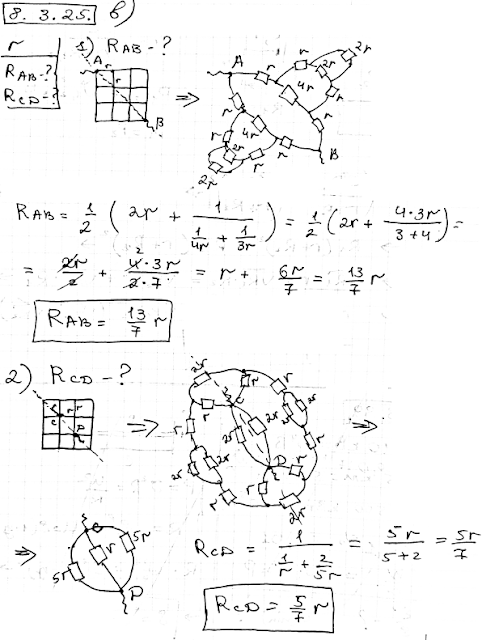 8.3.25. б)
r
R_AB - ?
R_CD - ?
1) R_AB - ?
A r
r
B
⇒
A r r 2r 2r 4r r r B
r r 4r 2r 2r r r
R_AB = 1/2 (2r + 1/(1/4r + 1/3r)) = 1/2 (2r + 4·3r/(3+4)) =
= 2r/2 + 4·3r/2·7 = r + 6r/7 = 13/7 r
R_AB = 13/7 r
2) R_CD - ?
r r
C D
⇒
2r r r C r 2r 2r r 2r 2r r 2r D r r r 2r
⇒
⇒
C 5r r 5r D
R_CD = 1/(1/r + 2/5r) = 5r/(5+2) = 5r/7
R_CD = 5/7 r